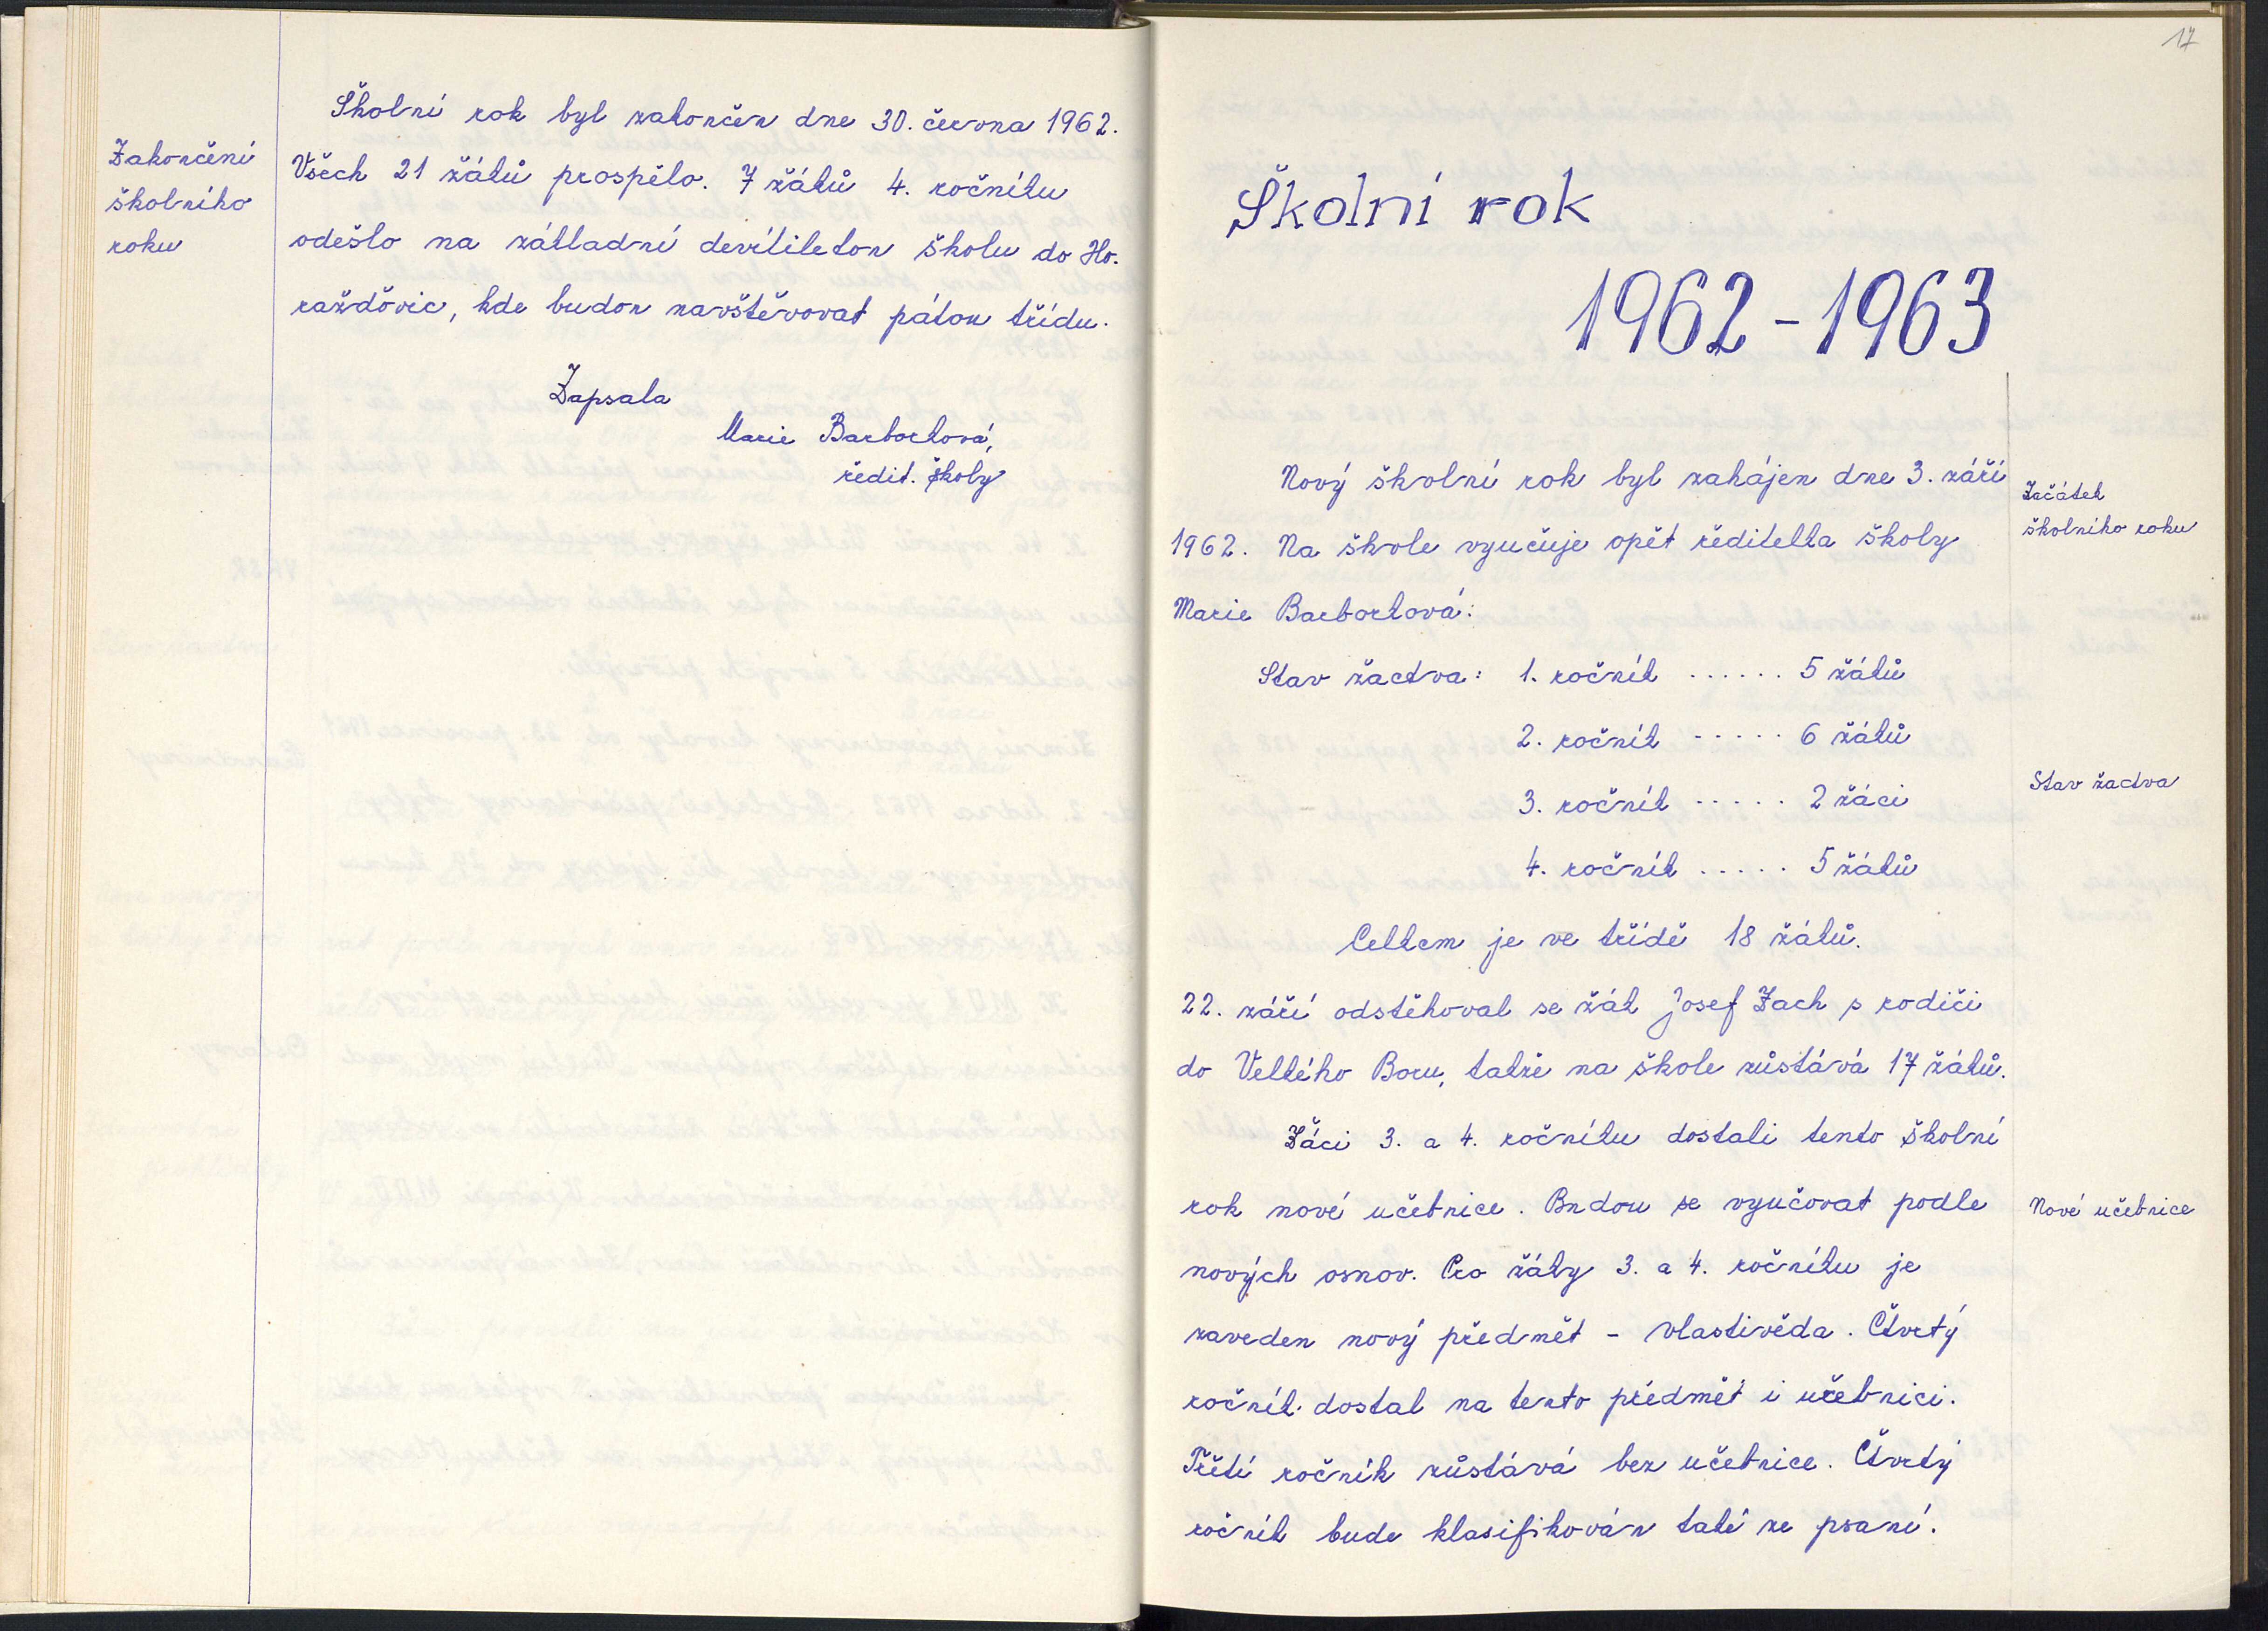 Zakončení
školního
roku
Školní rok byl zakončen dne 30. června 1962.
Všech 21 žáků prospělo. 7 žáků 4. ročníku
odešlo na základní devítiletou školu do Ho-
raždovic, kde budou navštěvovat pátou třídu.
Zapsala
Marie Barborková,
ředit. školy
17
Školní rok
1962-1963
Nový školní rok byl zahájen dne 3. září
1962. Na škole vyučuje opět ředitelka školy
Marie Barborková:
Začátek
školního roku
Stav žactva: 1. ročník ...... 5 žáků
2. ročník ..... 6 žáků
3. ročník ..... 2 žáci
4. ročník ..... 5 žáků
Stav žactva
Celkem je ve třídě 18 žáků.
22. září odstěhoval se žák Josef Zach s rodiči
do Velkého Boru, takže na škole zůstává 17 žáků.
Žáci 3. a 4. ročníku dostali tento školní
rok nové učebnice. Budou se vyučovat podle
nových osnov. Pro žáky 3. a 4. ročníku je
zaveden nový předmět - vlastivěda. Čtvrtý
ročník dostal na tento předmět i učebnici.
Třetí ročník zůstává bez učebnice. Čtvrtý
ročník bude klasifikován také ze psaní.
Nové učebnice